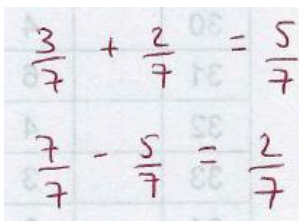 3/7 + 2/7 = 5/7
7/7 - 5/7 = 2/7